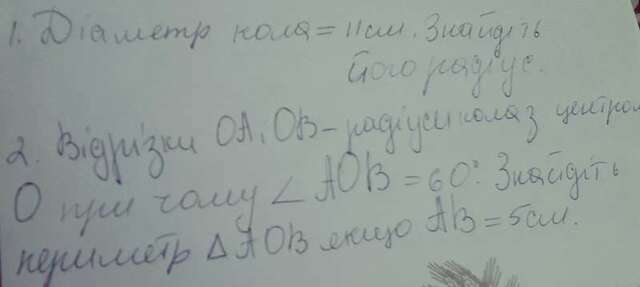 1. Діаметр кола = 11см. Знайдіть
його радіус.
2. Відрізки ОА, ОВ – радіуси кола з центром
О при чому ∠ АОВ = 60°. Знайдіть
периметр Δ АОВ якщо АВ = 5см.